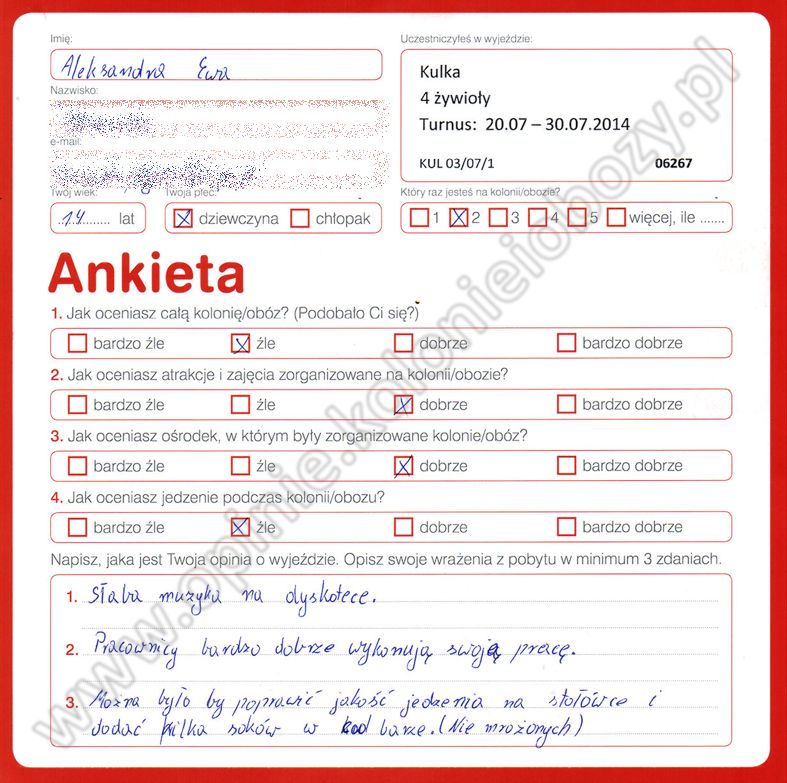 Imię:
Aleksandra Ewa
Nazwisko:
e-mail:
Twój wiek: Twoja płeć:
14 lat dziewczyna chłopak
Uczestniczyłeś w wyjeździe:
Kulka
4 żywioły
Turnus: 20.07 – 30.07.2014
KUL 03/07/1 06267
Który raz jesteś na kolonii/obozie?
1 2 3 4 5 więcej, ile .......
Ankieta
1. Jak oceniasz całą kolonię/obóz? (Podobało Ci się?)
bardzo źle źle dobrze bardzo dobrze
2. Jak oceniasz atrakcje i zajęcia zorganizowane na kolonii/obozie?
bardzo źle źle dobrze bardzo dobrze
3. Jak oceniasz ośrodek, w którym były zorganizowane kolonie/obóz?
bardzo źle źle dobrze bardzo dobrze
4. Jak oceniasz jedzenie podczas kolonii/obozu?
bardzo źle źle dobrze bardzo dobrze
Napisz, jaka jest Twoja opinia o wyjeździe. Opisz swoje wrażenia z pobytu w minimum 3 zdaniach.
1. Słaba muzyka na dyskotece.
2. Pracownicy bardzo dobrze wykonują swoją pracę.
3. Można było by poprawić jakość jedzenia na stołówce i
dodać kilka soków w barze. (Nie mrożonych)
www.opinie.kolonieiobozy.pl